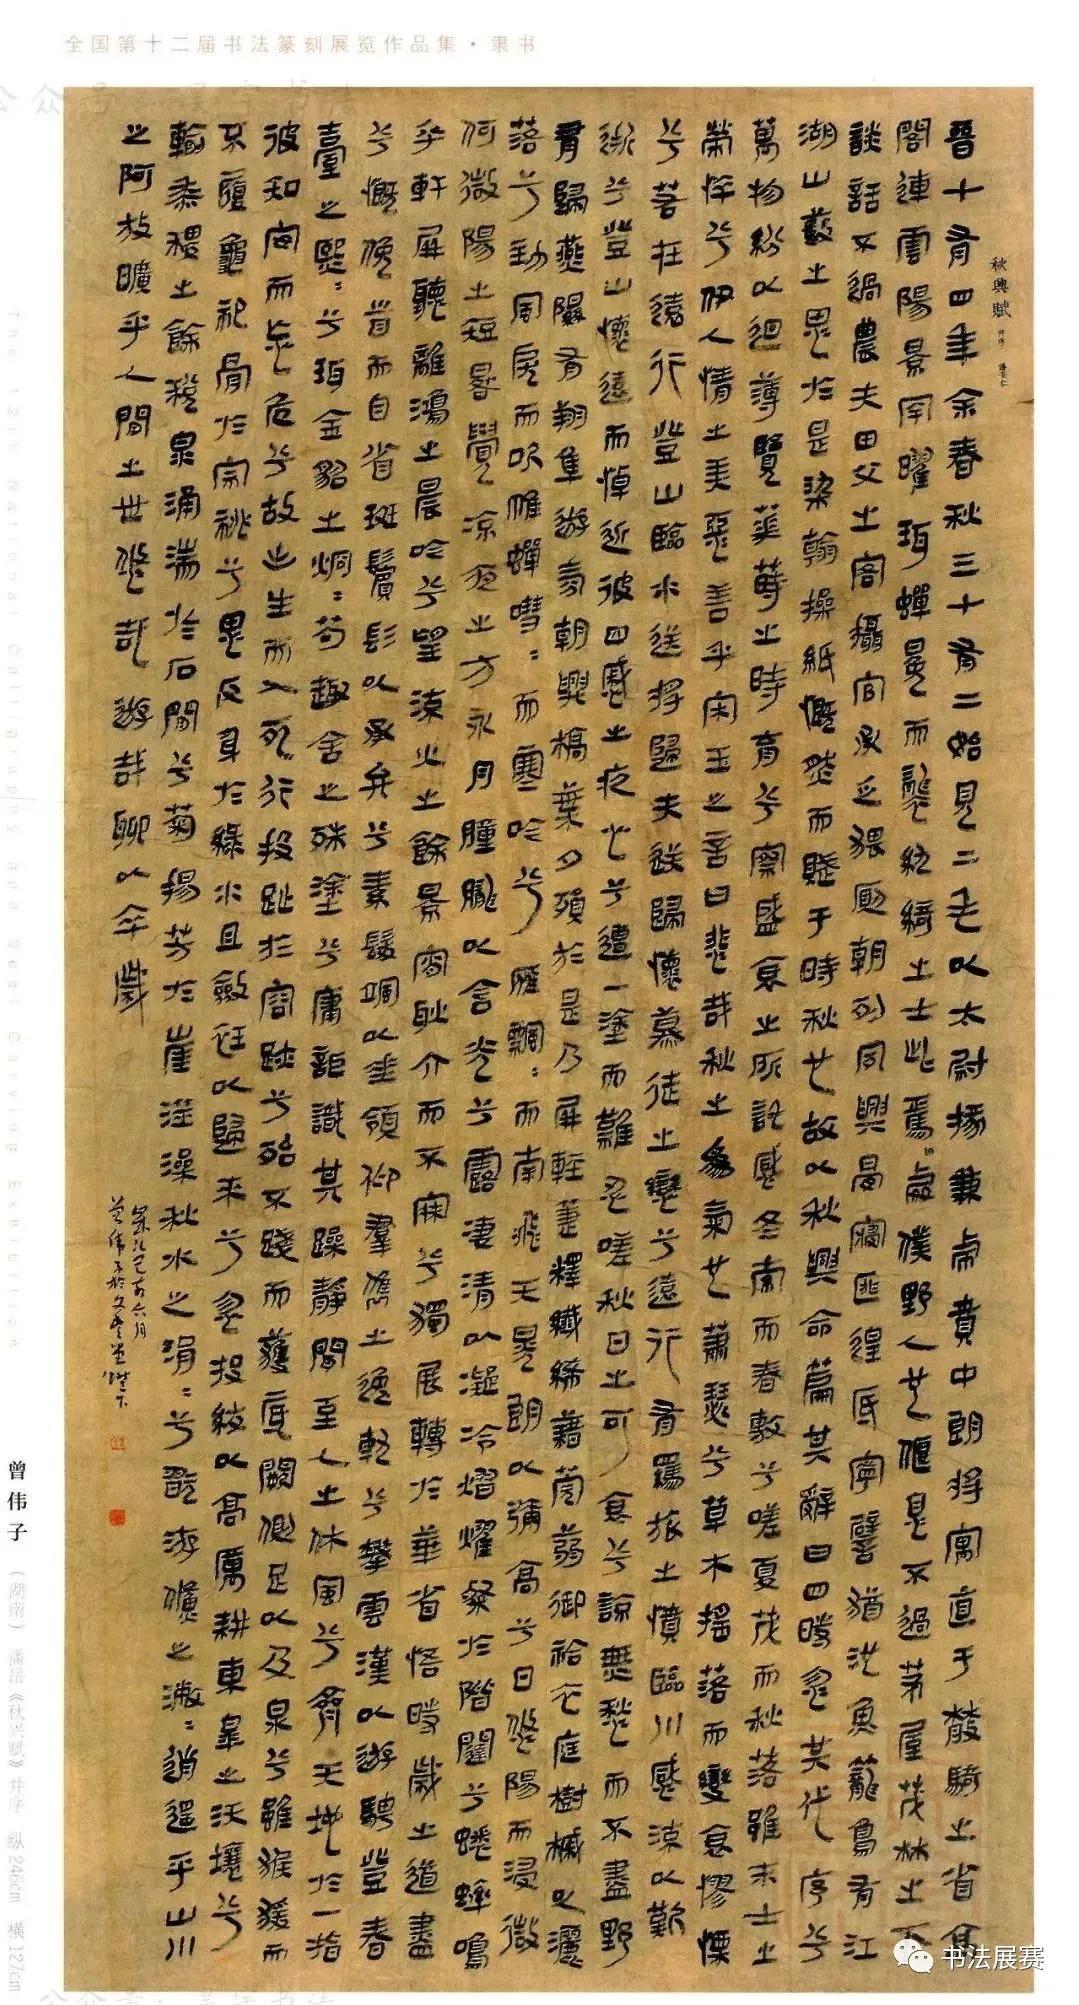 全国第十二届书法篆刻展览作品集·隶书
秋興賦 并序 潘安仁
晉十有四年余春秋三十有二始見二毛以太尉掾兼虎賁中朗將寓直于散騎之省高
閣連雲陽景罕曜珥蟬冕而襲紈綺之士此焉處僕野人也偃息不過茅屋茂林之下
談話不過農夫田父之客攝官承乏猥厠朝列夙興晏寢匪遑底寧譬猶池魚籠鳥有江
湖山藪之思於是染翰操紙慨然而賦于時秋也故以秋興命篇其辭曰四時忽其代序兮
萬物紛以迴薄覽華蒔之時育兮察盛衰之所託感冬索而春敷兮嗟夏茂而秋落雖末士之
榮悴兮伊人情之美惡善乎宋玉之言曰悲哉秋之為氣也蕭瑟兮草木搖落而變衰憀慄
兮若在遠行登山臨水送將歸夫送歸懷慕徒之戀兮遠行有羈旅之憤臨川感流以歎
逝兮登山懷遠而悼近彼四慼之疚心兮遭一塗而難忍嗟秋日之可哀兮諒無愁而不盡野
有歸燕隰有翔隼游氛朝興槁葉夕殞於是乃屏輕箑釋纖絺藉莞蒻御袷衣庭樹槭以灑
落兮勁風戾而吹帷蟬嘒〻而寒吟兮雁飄〻而南飛天晃朗以彌高兮日悠陽而浸微
何微陽之短晷覺涼夜之方永月朣朧以含光兮露凄清以凝冷熠燿粲於階闥兮蟋蟀鳴
乎軒屏聽離鴻之晨吟兮望流火之餘景宵耿介而不寐兮獨展轉於華省悟時歲之遒盡
兮慨俛首而自省斑鬢髟以承弁兮素髮颯以垂領仰羣儁之逸軌兮攀雲漢以游騁登春
臺之熙〻兮珥金貂之炯〻苟趣舍之殊塗兮庸詎識其躁靜聞至人之休風兮齊天地於一指
彼知安而忘危兮故出生而入死行投趾於容跡兮殆不踐而獲底闕側足以及泉兮雖猴猨而
不履龜祀骨於宗祧兮思反身於綠水且斂衽以歸來兮忽投紱以高厲耕東皋之沃壤兮
輸黍稷之餘稅泉涌湍於石間兮菊揚芳於崖澨澡秋水之涓〻兮翫游鯈之潎〻逍遙乎山川
之阿放曠乎人間之世悠哉游哉聊以卒歲
歲次己亥六月
曾伟子（湖南） 潘岳《秋兴赋》并序 纵246cm 横127cm
The 12th National Calligraphy and Seal Carving Exhibition
书法展赛